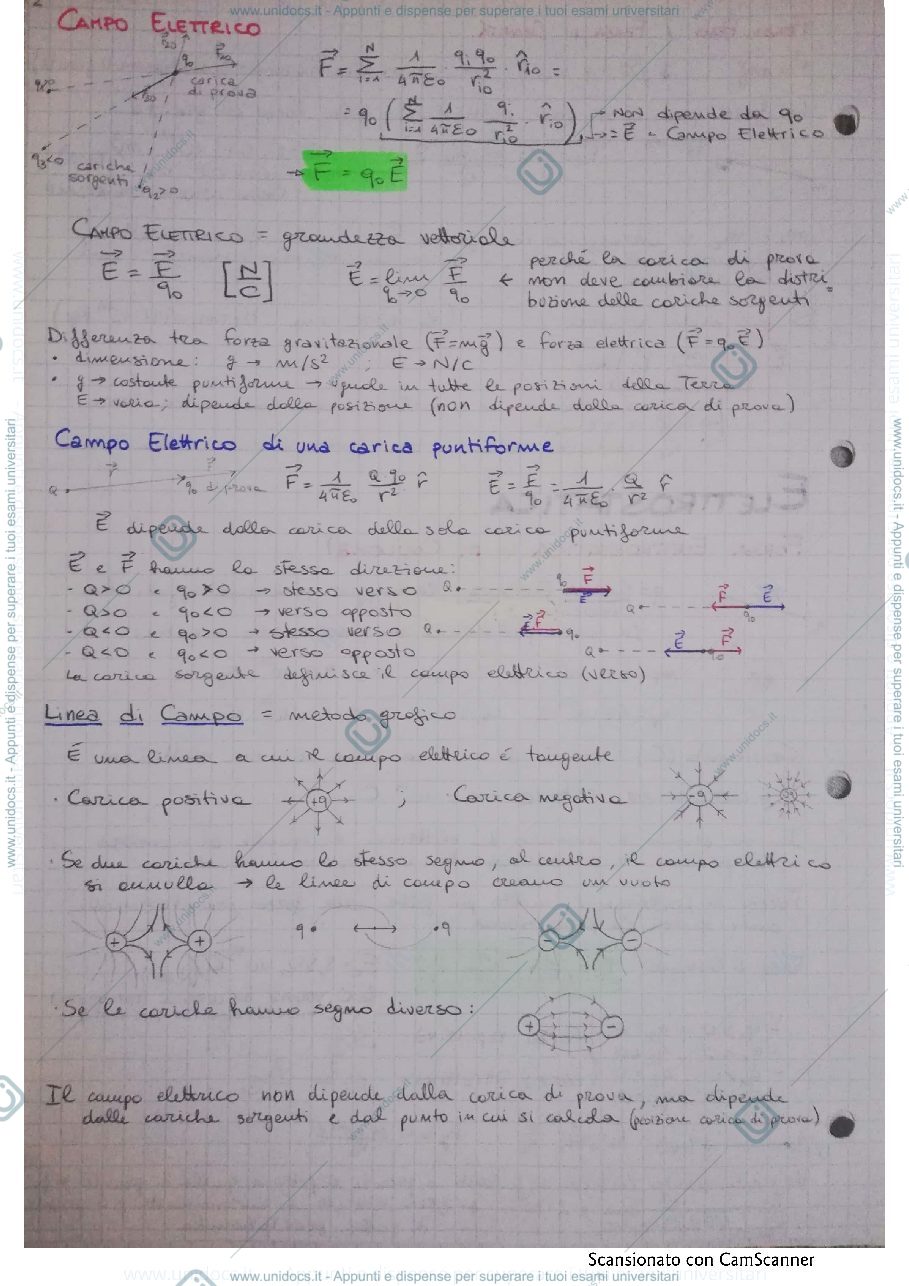 www.unidocs.it - Appunti e dispense per superare i tuoi esami universitari
CAMPO ELETTRICO
q0
carica
di prova
q3<0
cariche
sorgenti
q2>0
F = Σ i=1 N 1/4πε0 · qi q0/r²i0 · r̂i0 =
= q0 ( Σ i=1 N 1/4πε0 qi/r²i0 · r̂i0 ) → NON dipende da q0
→ = E = Campo Elettrico
→ F = q0 E
CAMPO ELETTRICO = grandezza vettoriale
E = F/q0 [N/C] E = lim q0→0 F/q0 ← perché la carica di prova
non deve cambiare la distri
buzione delle cariche sorgenti
Differenza tra forza gravitazionale (F=mg) e forza elettrica (F=q0E)
• dimensione: g → m/s² ; E → N/C
• g → costante puntiforme → uguale in tutte le posizioni della Terra
E → varia; dipende dalla posizione (non dipende dalla carica di prova)
Campo Elettrico di una carica puntiforme
Q r q0 di prova F = 1/4πε0 Q q0/r² r̂ E = F/q0 = 1/4πε0 · Q/r² r̂
E dipende dalla carica della sola carica puntiforme
E e F hanno la stessa direzione:
- Q>0 e q0>0 → stesso verso Q q0 F E
- Q>0 e q0<0 → verso opposto Q F E q0
- Q<0 e q0>0 → stesso verso Q E F q0
- Q<0 e q0<0 → verso opposto Q E F q0
La carica sorgente definisce il campo elettrico (verso)
Linea di Campo = metodo grafico
É una linea a cui il campo elettrico é tangente
· Carica positiva +q ; Carica negativa -q
· Se due cariche hanno lo stesso segno, al centro, il campo elettrico
si annulla → le linee di campo creano un vuoto
+ + q q - -
· Se le cariche hanno segno diverso: + -
Il campo elettrico non dipende dalla carica di prova, ma dipende
dalle cariche sorgenti e dal punto in cui si calcola (posizione carica di prova)
Scansionato con CamScanner
www.unidocs.it - Appunti e dispense per superare i tuoi esami universitari